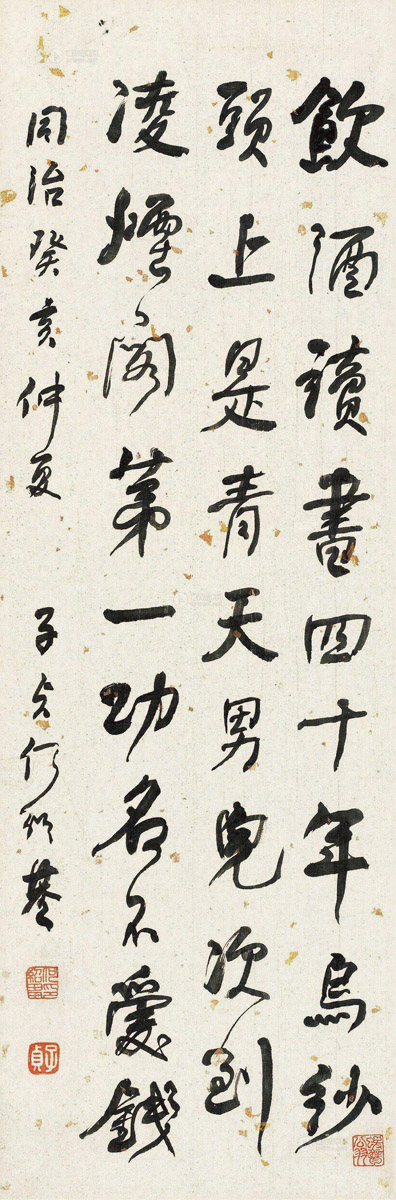 飲酒讀書四十年烏紗
頭上是青天男兒欲到
凌煙閣第一功名不愛錢
同治癸亥仲夏 子貞何紹基
何印紹基
子貞